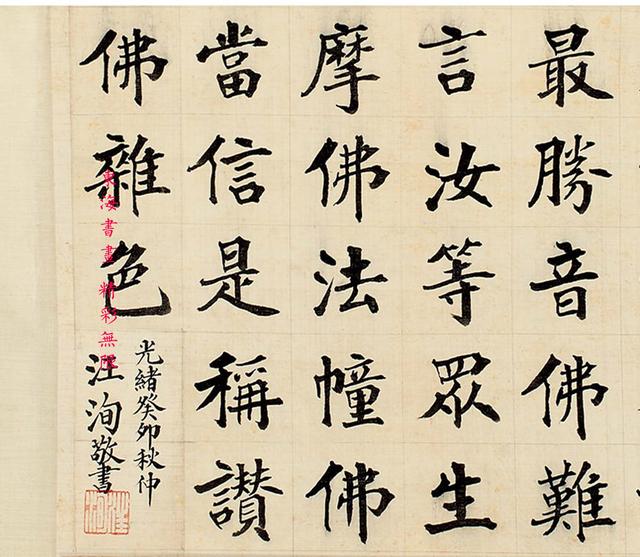 最勝音佛難
言汝等眾生
摩佛法幢佛
當信是稱讃
佛雜色
光緒癸卯秋仲
汪洵敬書
東海書畫 精彩無限
汪洵